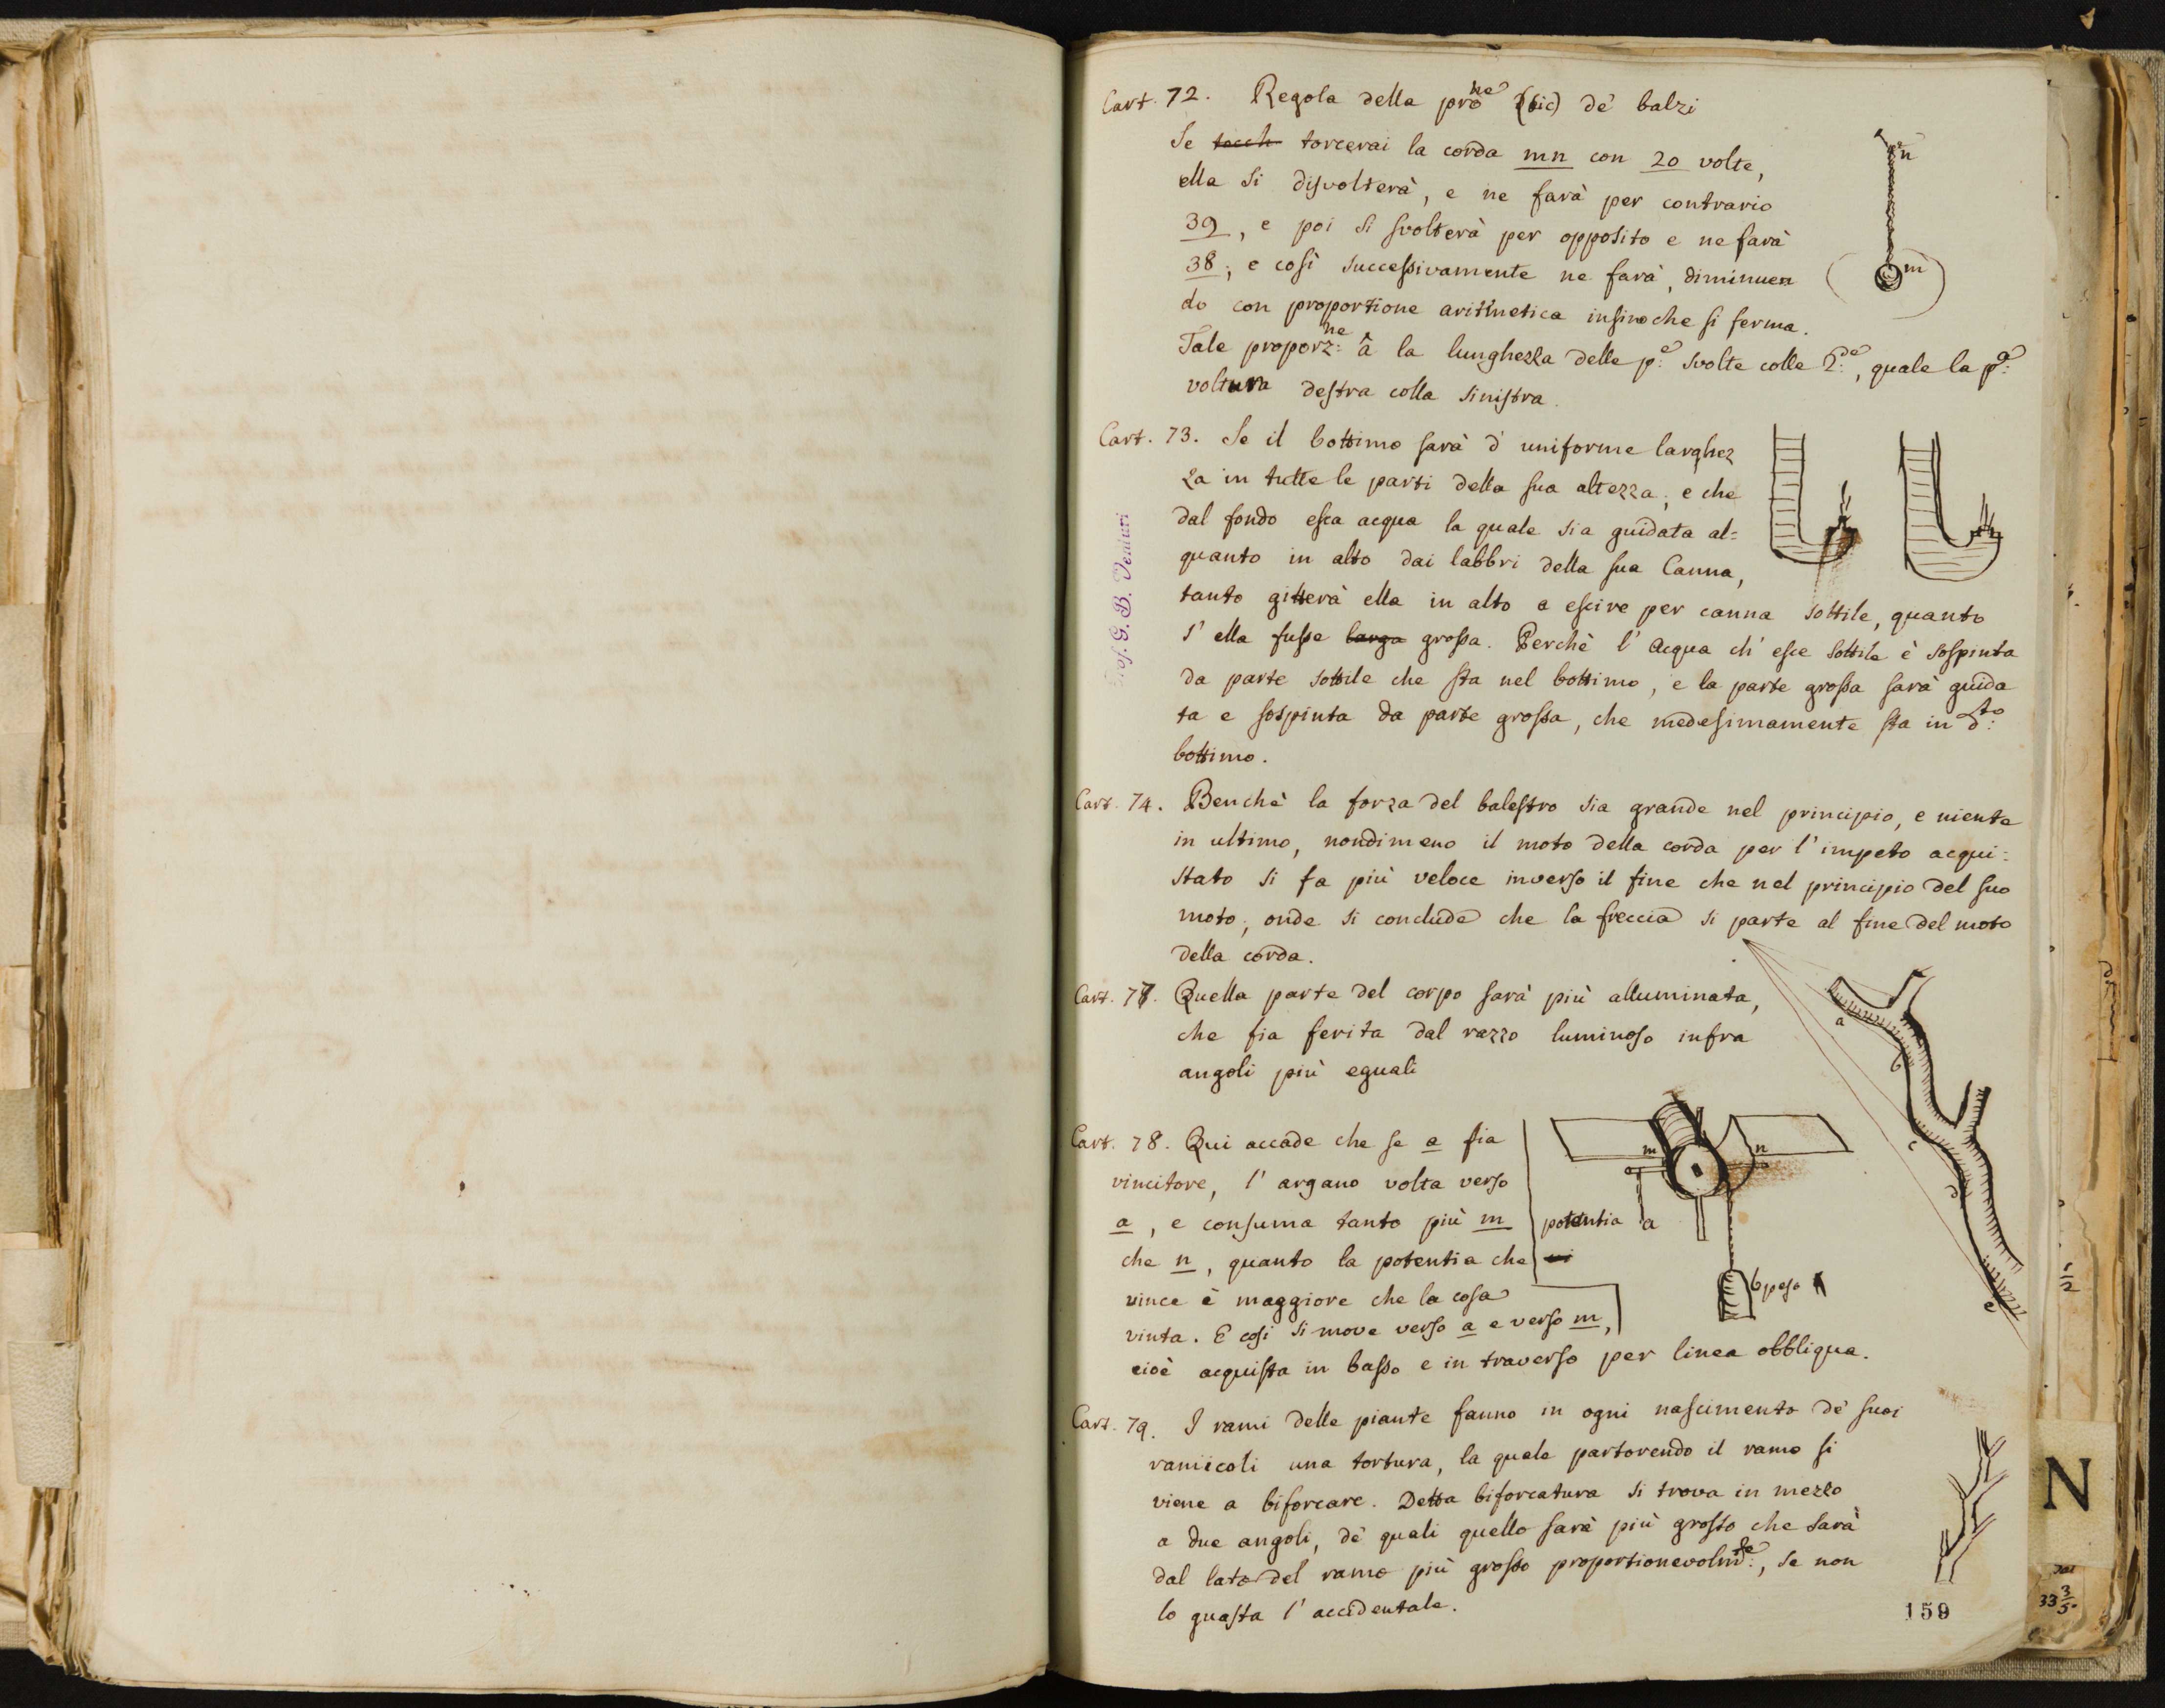 Cart. 72. Regola della pro.ne (sic) de' balzi
Se tocch torcerai la corda mn con 20 volte,
ella si disvolterà, e ne farà per contrario
39, e poi si svolterà per opposito e ne farà
38; e così successivamente ne farà, diminuen
do con proportione aritmetica insinoche si ferma.
Tale proporz:ne â la lunghezza delle p:e svolte colle 2:de, quale la p:a
voltura destra colla sinistra.
n
m
Cart. 73. Se il bottimo sarà d' uniforme larghez
za in tutte le parti della sua altezza; e che
dal fondo esca acqua la quale sia guidata al=
quanto in alto dai labbri della sua Canna,
tanto gitterà ella in alto a escire per canna sottile, quanto
s' ella fusse larga grossa. Perchè l' Acqua ch' esce sottile è sospinta
da parte sottile che sta nel bottimo, e la parte grossa sarà guida
ta e sospinta da parte grossa, che medesimamente sta in d:to
bottimo.
Prof. G. B. Venturi
Cart. 74. Benchè la forza del balestro sia grande nel principio, e niente
in ultimo, nondimeno il moto della corda per l' impeto acqui=
stato si fa più veloce inverso il fine che nel principio del suo
moto; onde si conclude che la freccia si parte al fine del moto
della corda.
Cart. 77. Quella parte del corpo sarà più alluminata,
che fia ferita dal razzo luminoso infra
angoli più eguali
a
b
c
d
e
Cart. 78. Qui accade che se a fia
vincitore, l' argano volta verso
a, e consuma tanto più m
che n, quanto la potentia che vi
vince è maggiore che la cosa
vinta. E così si move verso a e verso m,
cioè acquista in basso e in traverso per linea obbliqua.
m n
potentia a
b peso
Cart. 79. I rami delle piante fanno in ogni nascimento de' suoi
ramicoli una tortura, la quale partorendo il ramo si
viene a biforcare. Detta biforcatura si trova in mezzo
a due angoli, de' quali quello sarà più grosso che sarà
dal lato del ramo più grosso proportionevolm:te, se non
lo guasta l' accidentale.
159
N
33 3/5